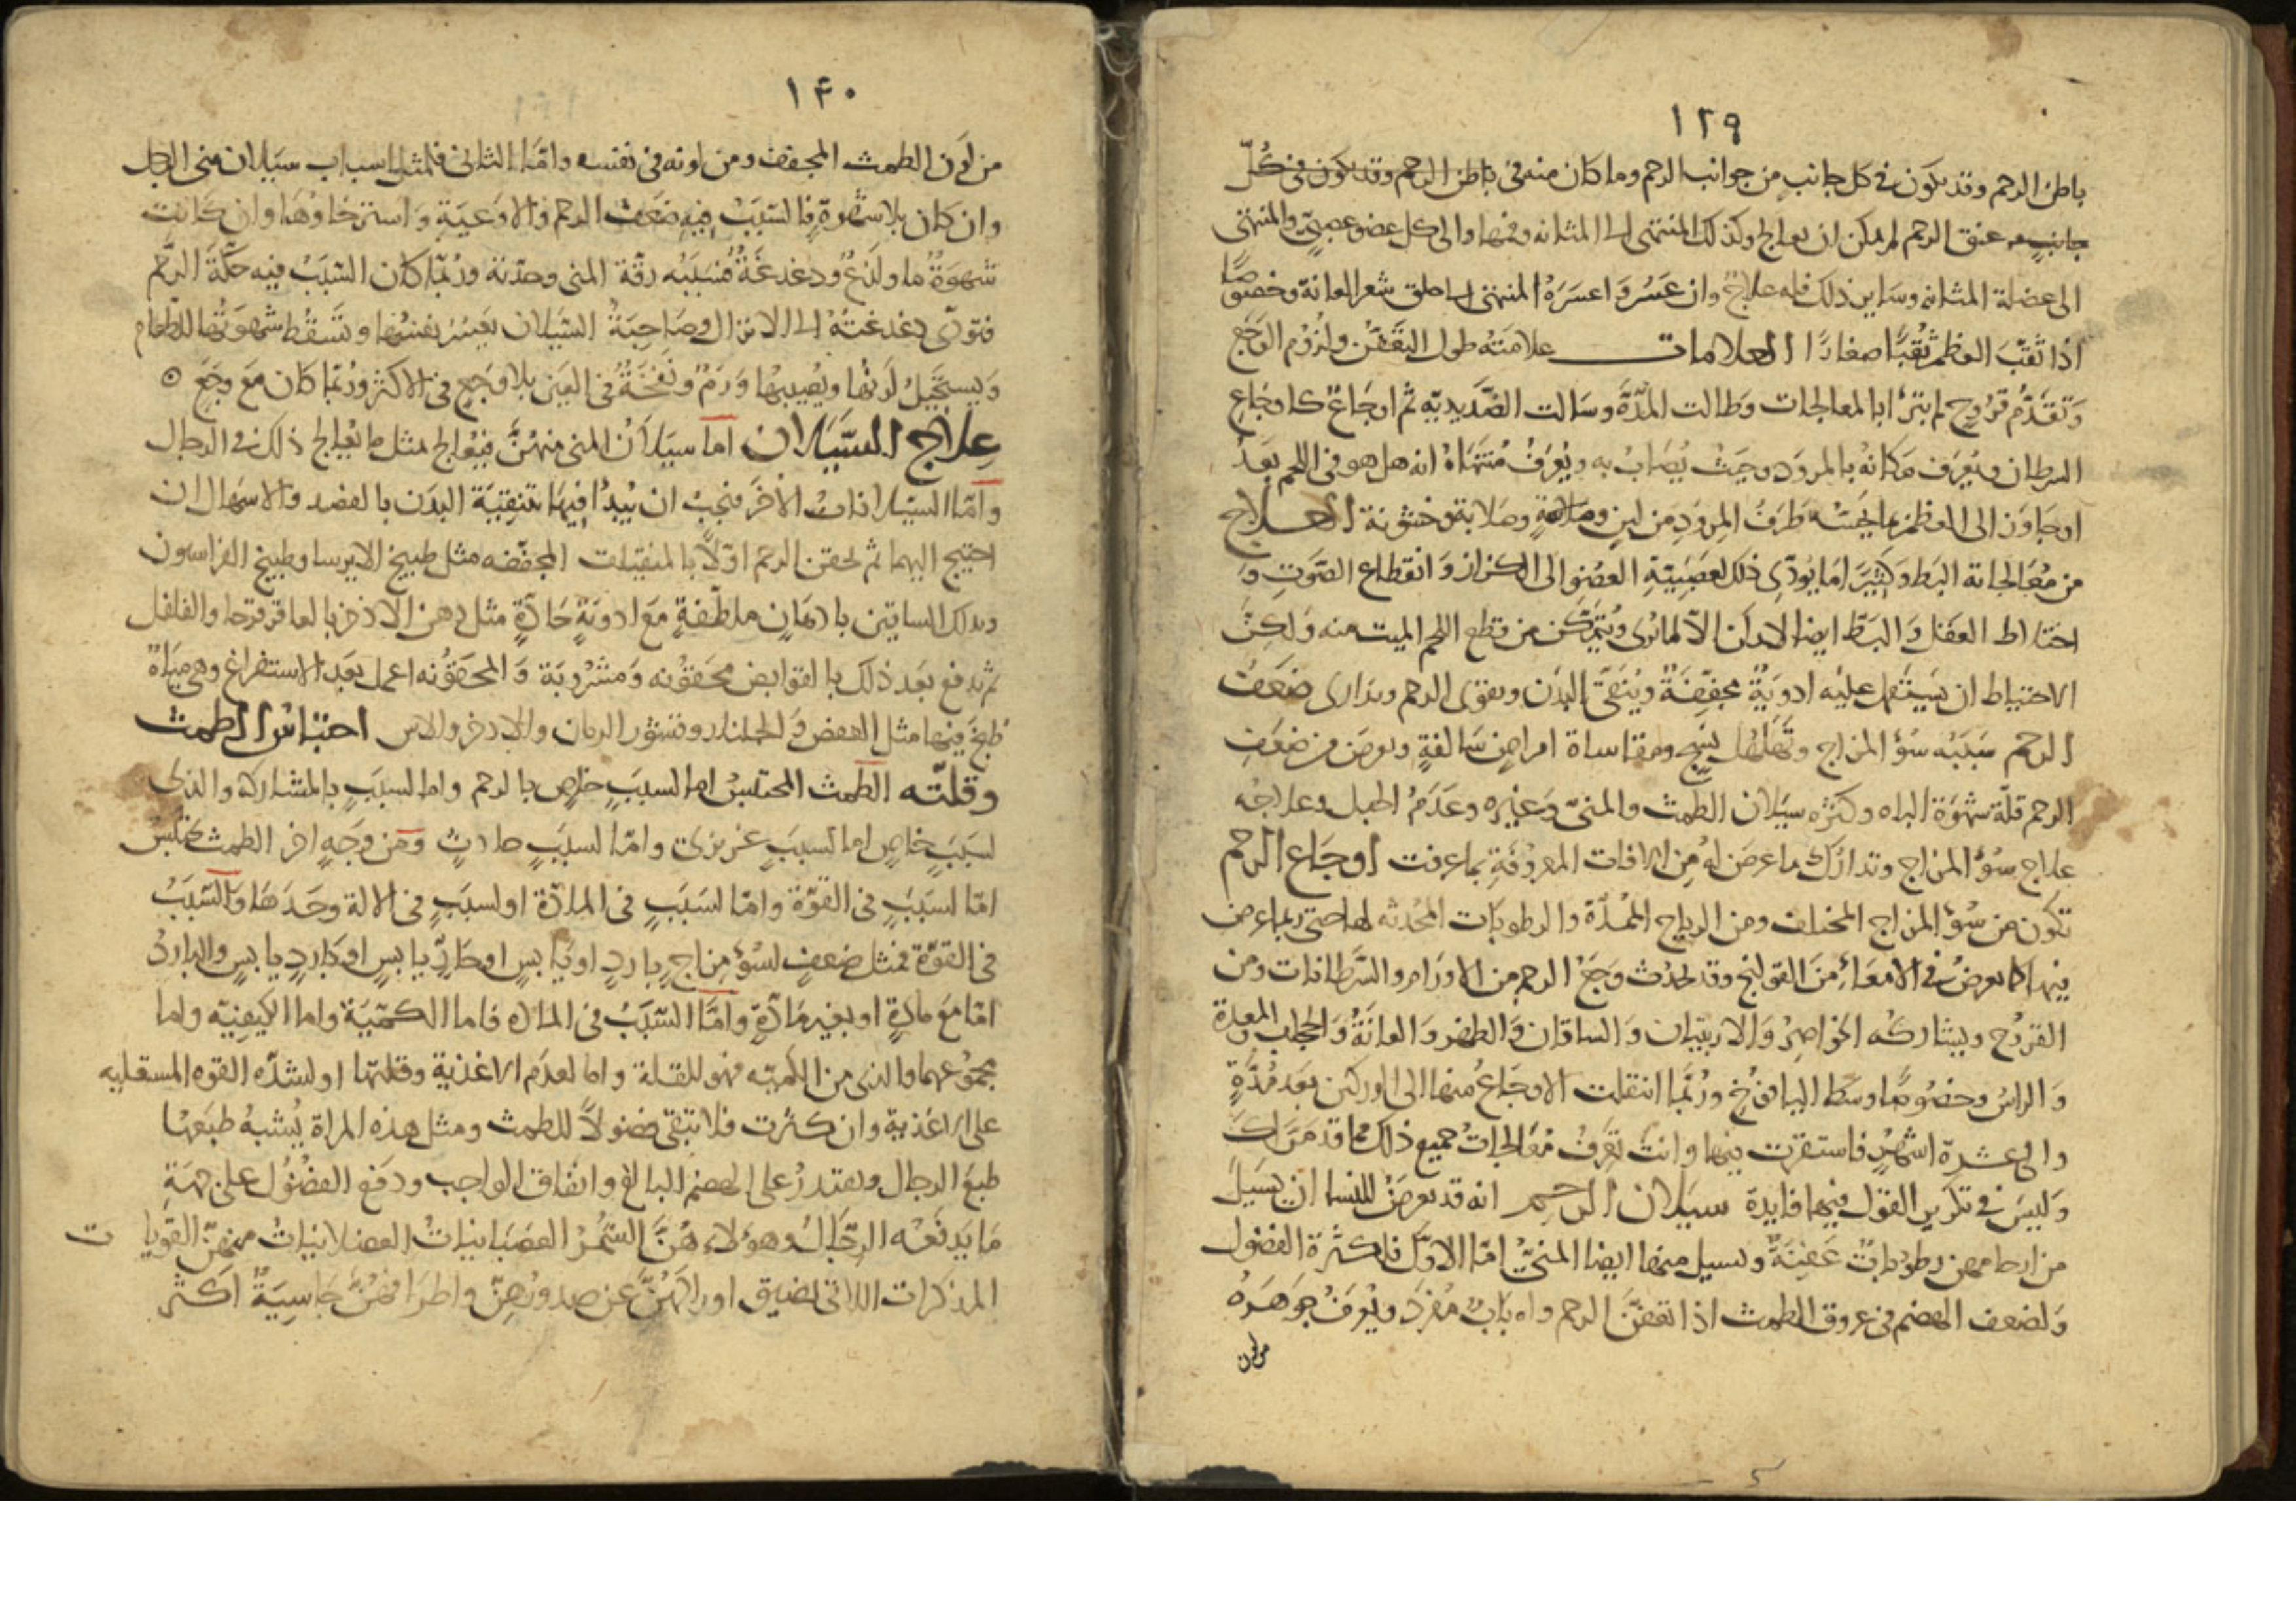 ١٣٩
باطن الرحم وقد يكون في كل جانب من جوانب الرحم وما كان منه في باطن الرحم وقد يكون في كُلّ
جانبٍ من عنق الرحم لم يمكن ان يعالج وكذلك المنتهى الى المثانه وفمها والى كل عضو عصبيّ والمنتهى
الى عضلة المثانه وساير ذلك فله علاجٌ وان عَسُرَ واعسَرَهُ المنتهى الى ما خلق شعر العانة وخصوصًا
اذا ثقّبَ العظم ثُقبًا صغارًا العلامات علامَتهُ طول التقَفّن ولزُوم الوَجَع
وَتقَدُّم قرُوحٍ لم تبرَأ بالمعالجات وطالت المدَّة وسَالت الصَّديديّه ثم اوجَاعٌ كاوجَاعِ
السرطان ويُعرَف مَكانهُ بالمروَد وحَيثُ يُصَابُ به ويُعرَفُ مُنتَهَاهُ انه هل هو في اللحم بَعدُ
اوجَاوَزَ الى العظم بما يحَسُّه طَرَفُ المِروَدِ من لينٍ وصَلابةٍ وخشونة العلاج
من مُعَالجاته البَط وَكثِيرًا ما يُودّى ذلك لعَصَبِيّةِ العضوِ الى الكزاز وَانقطاع الصَّوت وَ
اختلاط العَقل وَالبَطّ ايضا لا الاّ لما يُرى ويُتمَكّن من قطع اللحم الميت منه وَلكِنَّ
الاحتياط ان يَستَعمل عليه ادويَةٌ مجفِّفَةٌ ويُنَقَّى البدَن ويقوّى الرحم ويدارى ضعَفُ
الرحم سَبَبُه سُوُ المزاج وتَهَلهُل نسجٍ ومقاساة امراضٍ سَالفةٍ ويعرض من ضعَفِ
الرحم قلّة شهوَة الباه وكثرَة سيَلان الطمث والمنىّ وَغيره وعَدَمُ الحبل وعلاجُه
علاج سُوُ المزاج وتدارُك ما عرضَ لهُ مِن الافات المعروفةِ بما عرفت اوجَاع الرحم
تكون من سُوُ المزاج المختلف ومن الرياح الممدّة والرطوبات المُحدثه لها حتى ربما عرض
فيها كما يعرضُ في الامعَاءِ منَ القولنج وقد يحدُث وَجَعُ الرحم من الاورَام والسّرَطانات ومن
القروُح ويشاركهُ الخواصِرُ وَالاربيتان وَالساقان وَالظهر وَالعانَةُ وَالحجاب والمعدة
وَالراسُ وخصُوصًا وسط اليافوُخ ورُبَّما انتقلت الاوجَاعُ منها الى الوركين بَعدَ مُدّةٍ
والى عشرة اشهرٍ فاستقرّت فيها وانتَ تعرفُ مُعَالجاتُ جميع ذلك مما قد مَرَّ لَكَ
وَليسَ في تكرير القوَل فيها فايدة سيَلان الرحم انه قد يعرضُ للنسا ان يَسَيلَ
من ارحامهن رطوباتٌ عَفِنَةٌ ويسيل منها ايضا المنىُّ امّا الاوّل فلكثرة الفضول
وَلضعف الهضم في عروق الطمث اذا تعفنَّ الرحم وله بابٌ مُفردٌ ويُعرَفُ جَوهَرُهُ
من لون
١٤٠
من لون الطمث المجفف ومن لونه في نفسه وامَّا الثاني فلمثل اسباب سيَلان منى الرجل
وان كان بلا شهوةٍ فالسّبَبُ فيهِ ضعَف الرحم والاوعيَةِ وَاسترخاوُهَا وان كانت
شهوَةٌ ما ولذعٌ ودغدغةٌ فسَبَبُه رقّة المنى وحدّته ورُبّما كان السّبَبُ فيه حكَّةَ الرحِم
فتوَدّى دغدغتهُ الى الانزال وصَاحِبَةُ السّيَلان يعَسُر نفسُها وتَسقُط شهوَتُها للطعام
وَيستحَيلُ لَونُها ويُصيبها وَرَمٌ ونفخَةٌ في العَين بلا وَجعٍ في الاكثر ورُبّما كان مَعَ وجَعٍ
عِلاج السّيَلان اما سيَلانُ المنى منهُنَّ فيُعالج بمثل ما يُعالج ذلك في الرجال
وامّا السّيلاناتُ الاُخَر فيجبُ ان يُبدأ فيها بتنقيَة البدَن بالفصد والاسهال ان
احتيج اليهما ثم يحقن الرحم اوّلاً بالمنقيات المجففه مثل طبيخ الايرسا وطبيخ الفراسيون
ويدلك الساقين بادهَانٍ ملطّفةٍ مَعَ ادويَةٍ حَادّةٍ مثل دهن الاذخر بالعاقرقرحا والفلفل
ثم يدفع بَعد ذلك بالقوابض محقوُنه وَمشروُبَة وَالمحقوُنه اعمل بعَد الاستفراغ وهي ميَاهٌ
طبخَ فيها مثل العفص وَالجلنار وقشور الرمان والاذخر والاس احتبَاسُ الطمث
وقلّته الطمث المحتبسُ اما لسببٍ خاص بالرحم واما لسبَبٍ بالمشاركه والذى
لسَبَبٍ خاصٍ اما لسببٍ غريزى وامّا لسببٍ حادثٍ ومن وَجهٍ اخر الطمث يحتَبسُ
امّا لسبَبٍ في القوّة وامّا لسَبَبٍ في المادّة او لسبَبٍ في الالة وحَدَهَا وَالسّبَبُ
في القوّة فمثل ضعفٍ لسُوُ مِزاجٍ باردٍ او يَابسٍ او حَارٍّ يابسٍ او بَاردٍ يابسٍ والباردُ
امّا مَعَ مادةٍ او بغير مَادّةٍ وامَّا السّبَبُ في الماده فاما الكميّة واما الكيفيّة واما
مجموُعهما والذى من الكميّه فهو للقلة واما لعدَم الاغذية وقلتها او لشدّه القوه المستعليه
على الاغذية وان كثرت فلا تبقى فضولاً للطمث ومثل هذه المراة يُشبهُ طبَعها
طبعَ الرجال ويقتدرُ على الهضم البالغ وانفاق الواجب ودَفع الفضُوُل على جهَةِ
مَا يَدفَعُه الرِجَالُ وهوُلاء هُنَّ السُمُرُ العصَبانياتُ العضلانياتُ منهنّ القويات
المذكرات اللاتى تضيق اوراكهُنَّ عن صدورهنّ واطرَافهُنَّ جَاسِيَةٌ اكثر